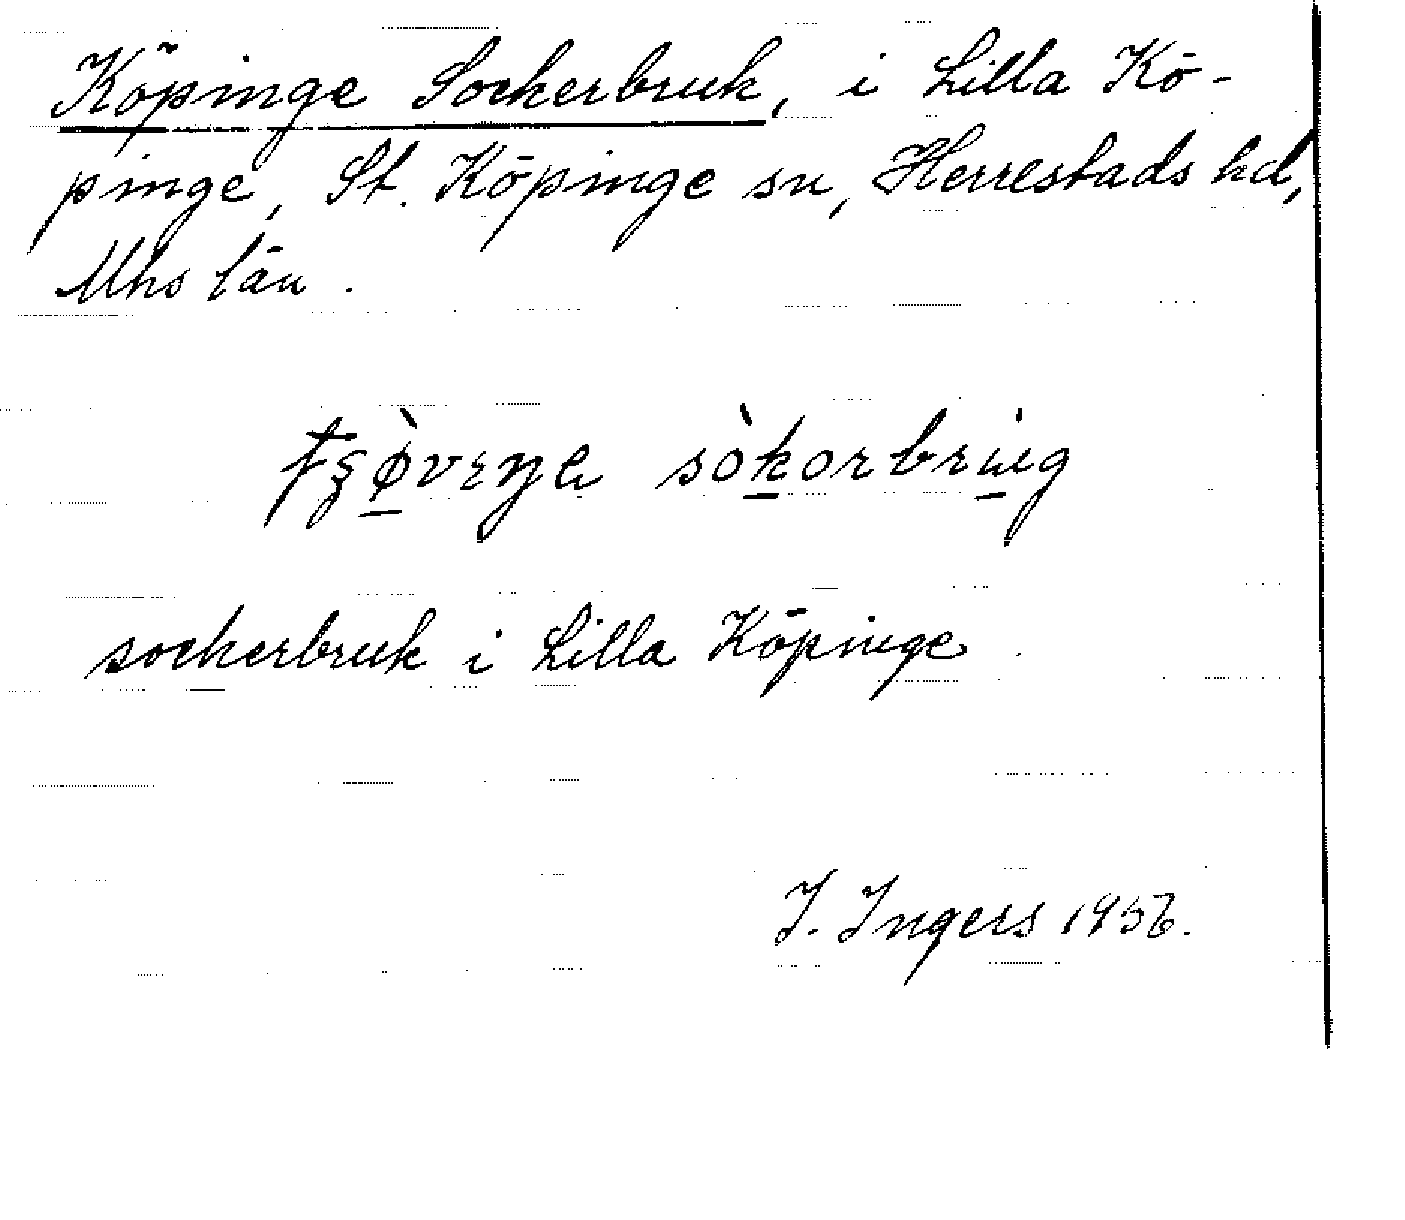 Köpinge Sockerbruk, i Lilla Kö-
pinge, St. Köpinge sn, Herrestads hd,
Mhs län.
sockerbruk i Lilla Köpinge.
I. Ingers 1956.